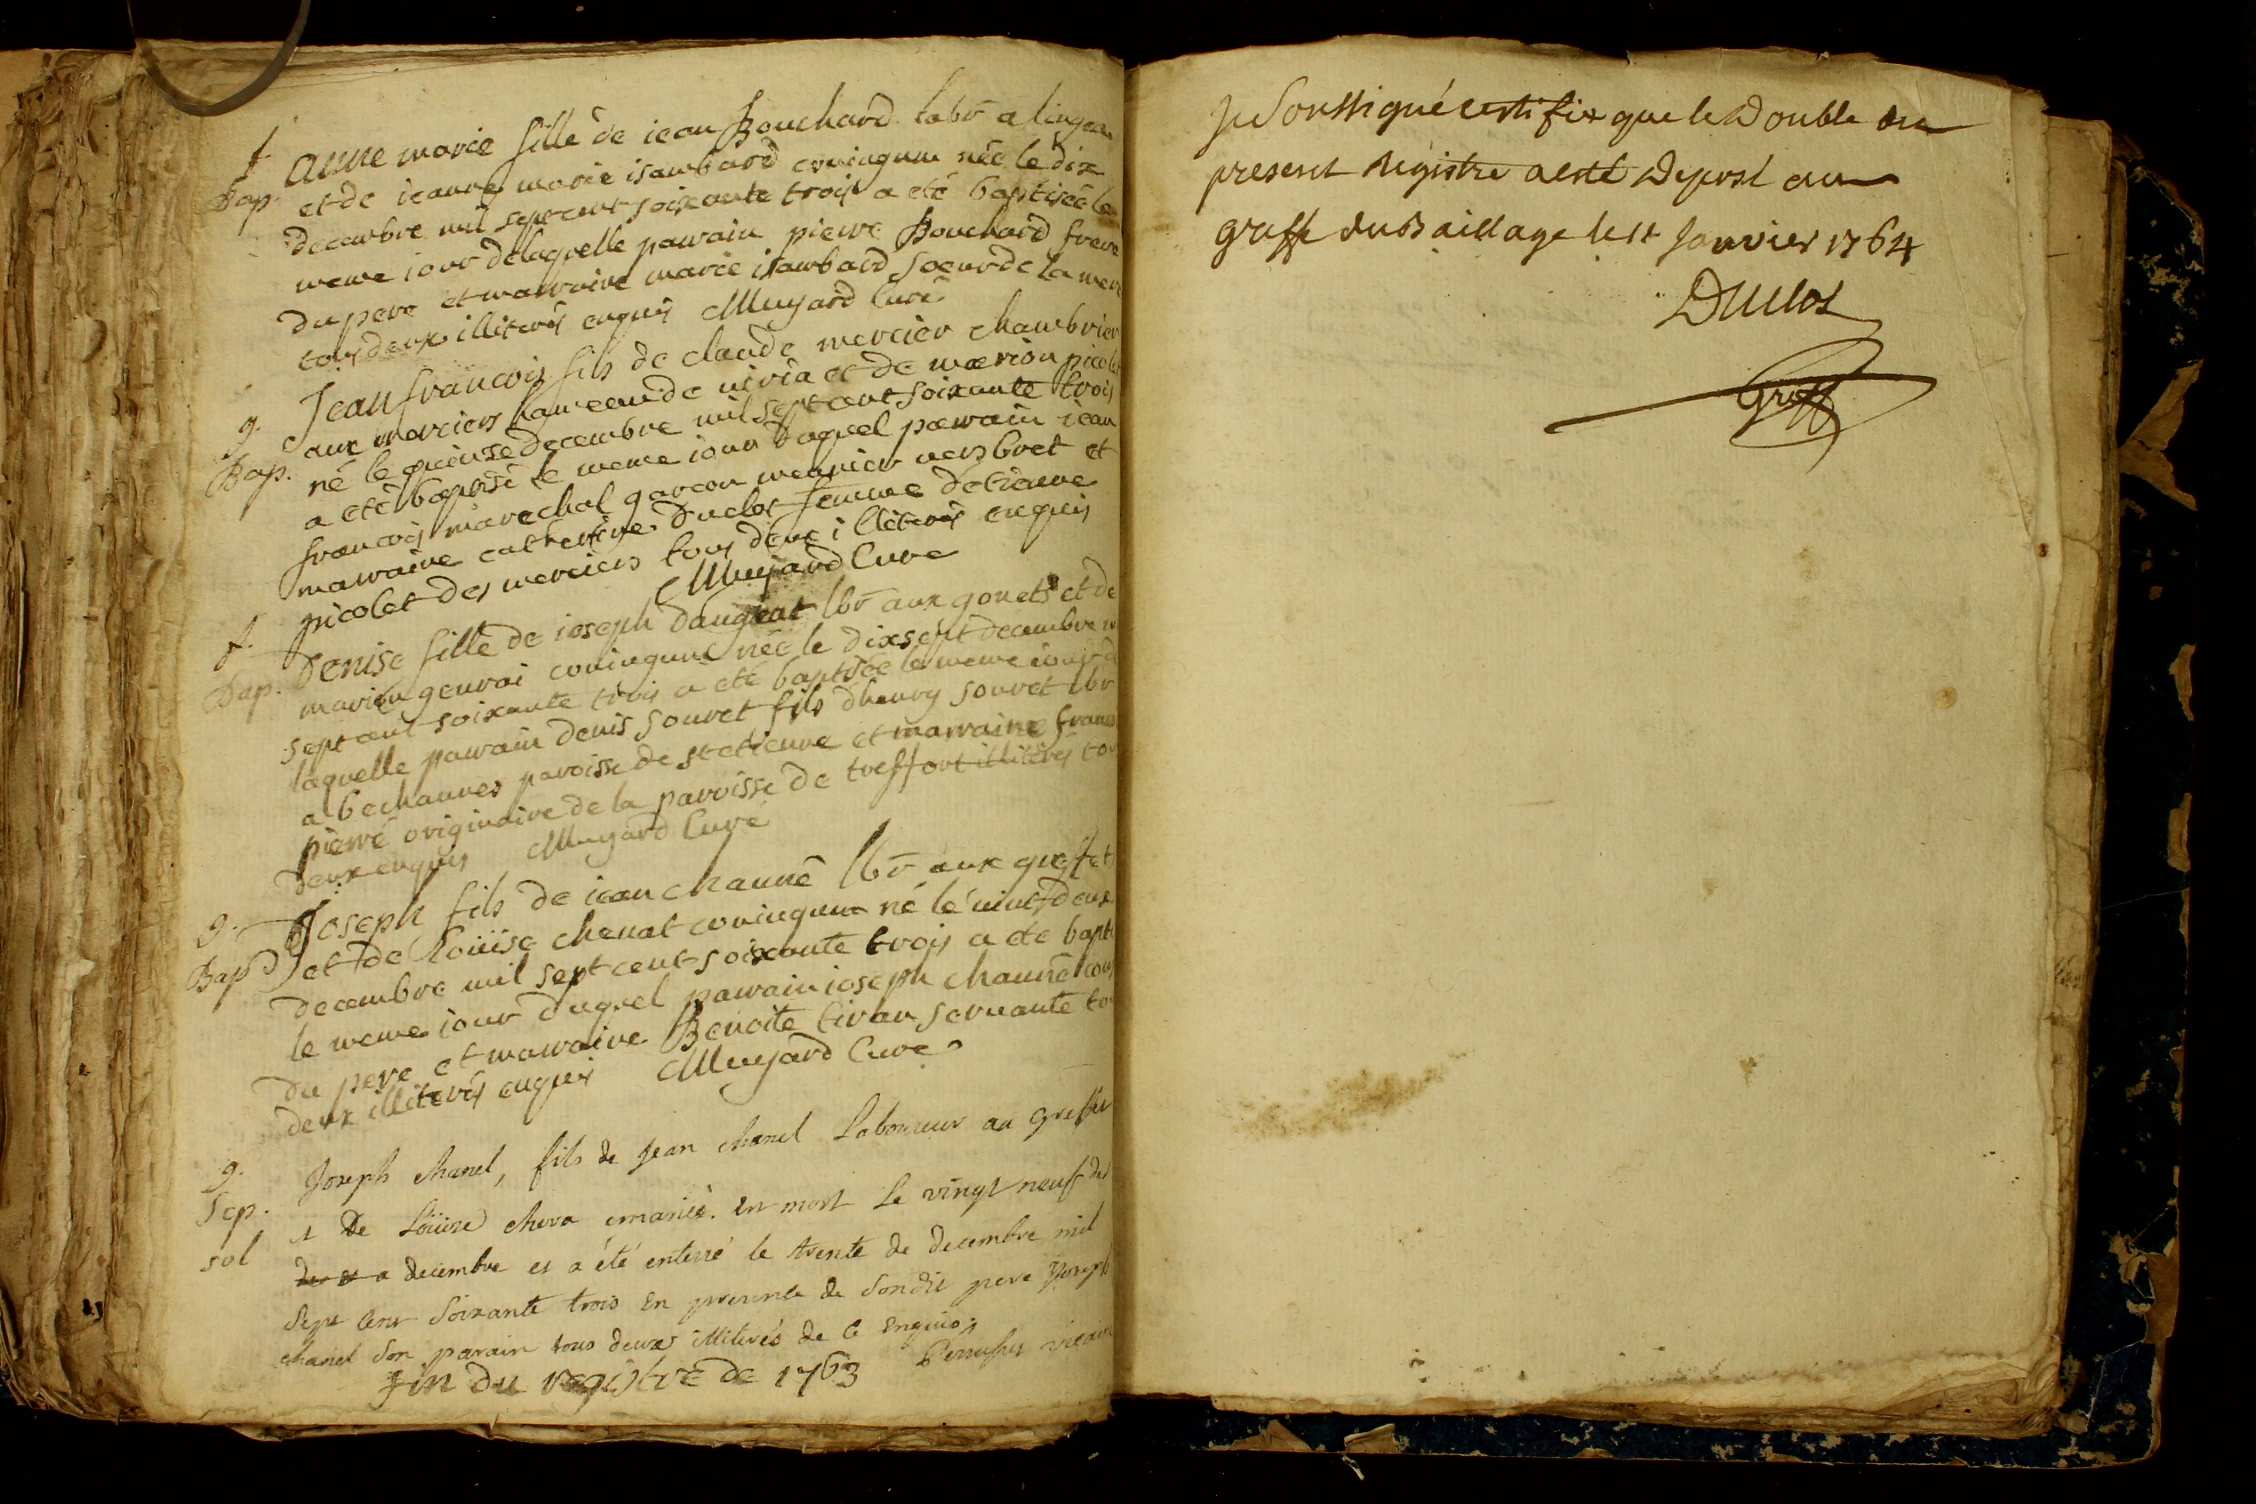 f.
Bap.
anne marie fille de iean Bouchard labr a lingeat
et de ieanne marie isambard coniugum née le dix
decembre mil sept cent soixante trois a eté baptisée le
meme iour de laquelle parrain pierre Bouchard frere
du pere et marraine marie isambard soeur de la mere
tous deux illiterés enquis Muyard Curé
g.
Bap.
Jean francois fils de claude mercier chambrier
aux merciers hameau de viria et de marion picolet
né le quinze decembre mil sept cent soixante trois
a eté baptisé le meme iour duquel parrain iean
francois marechal garcon meunier vers bret et
marraine catherine duclos femme detienne
picolet des merciers tous deux illiterés enquis
Muyard Cure
f.
Bap.
Denise fille de ioseph dangeat lbr aux gouets et de
marie geurai coniugum née le dixsept decembre m
sept cent soixante trois a eté baptisée le meme iour de
laquelle parrain denis souret fils dhenry souret lbr
a bechannes paroisse de st etienne et marraine franc
pierré originaire de la paroisse de treffort illiterés tou
deux enquis Muyard Curé
g.
Bap
Joseph fils de iean channé lbr aux greffet
et de Loüise chenat coniugum né le vint deux
decembre mil sept cent soixante trois a eté bapt
le meme iour duquel parrain ioseph channé cous
du pere et marraine Benoite tiran servante tou
deux illiterés enquis Muyard Cure
g.
Sep.
sol
Joseph chanel, fils de Jean chanel Laboureur au Greffet
et De Loüise chena emariée. est mort Le vingt neuf de
decembre et a été enterré le trente de decembre mil
Sept Cent Soixante trois En presence de Sondit pere Joseph
chanel Son parain tous deux illiterés de ce Enquis.
fin du registre de 1763 vicaire
Je Soussigné certifie que le Double du
present Registre a esté Deposé au
greffe du Baillage le 11 Janvier 1764
Duclos
Greff